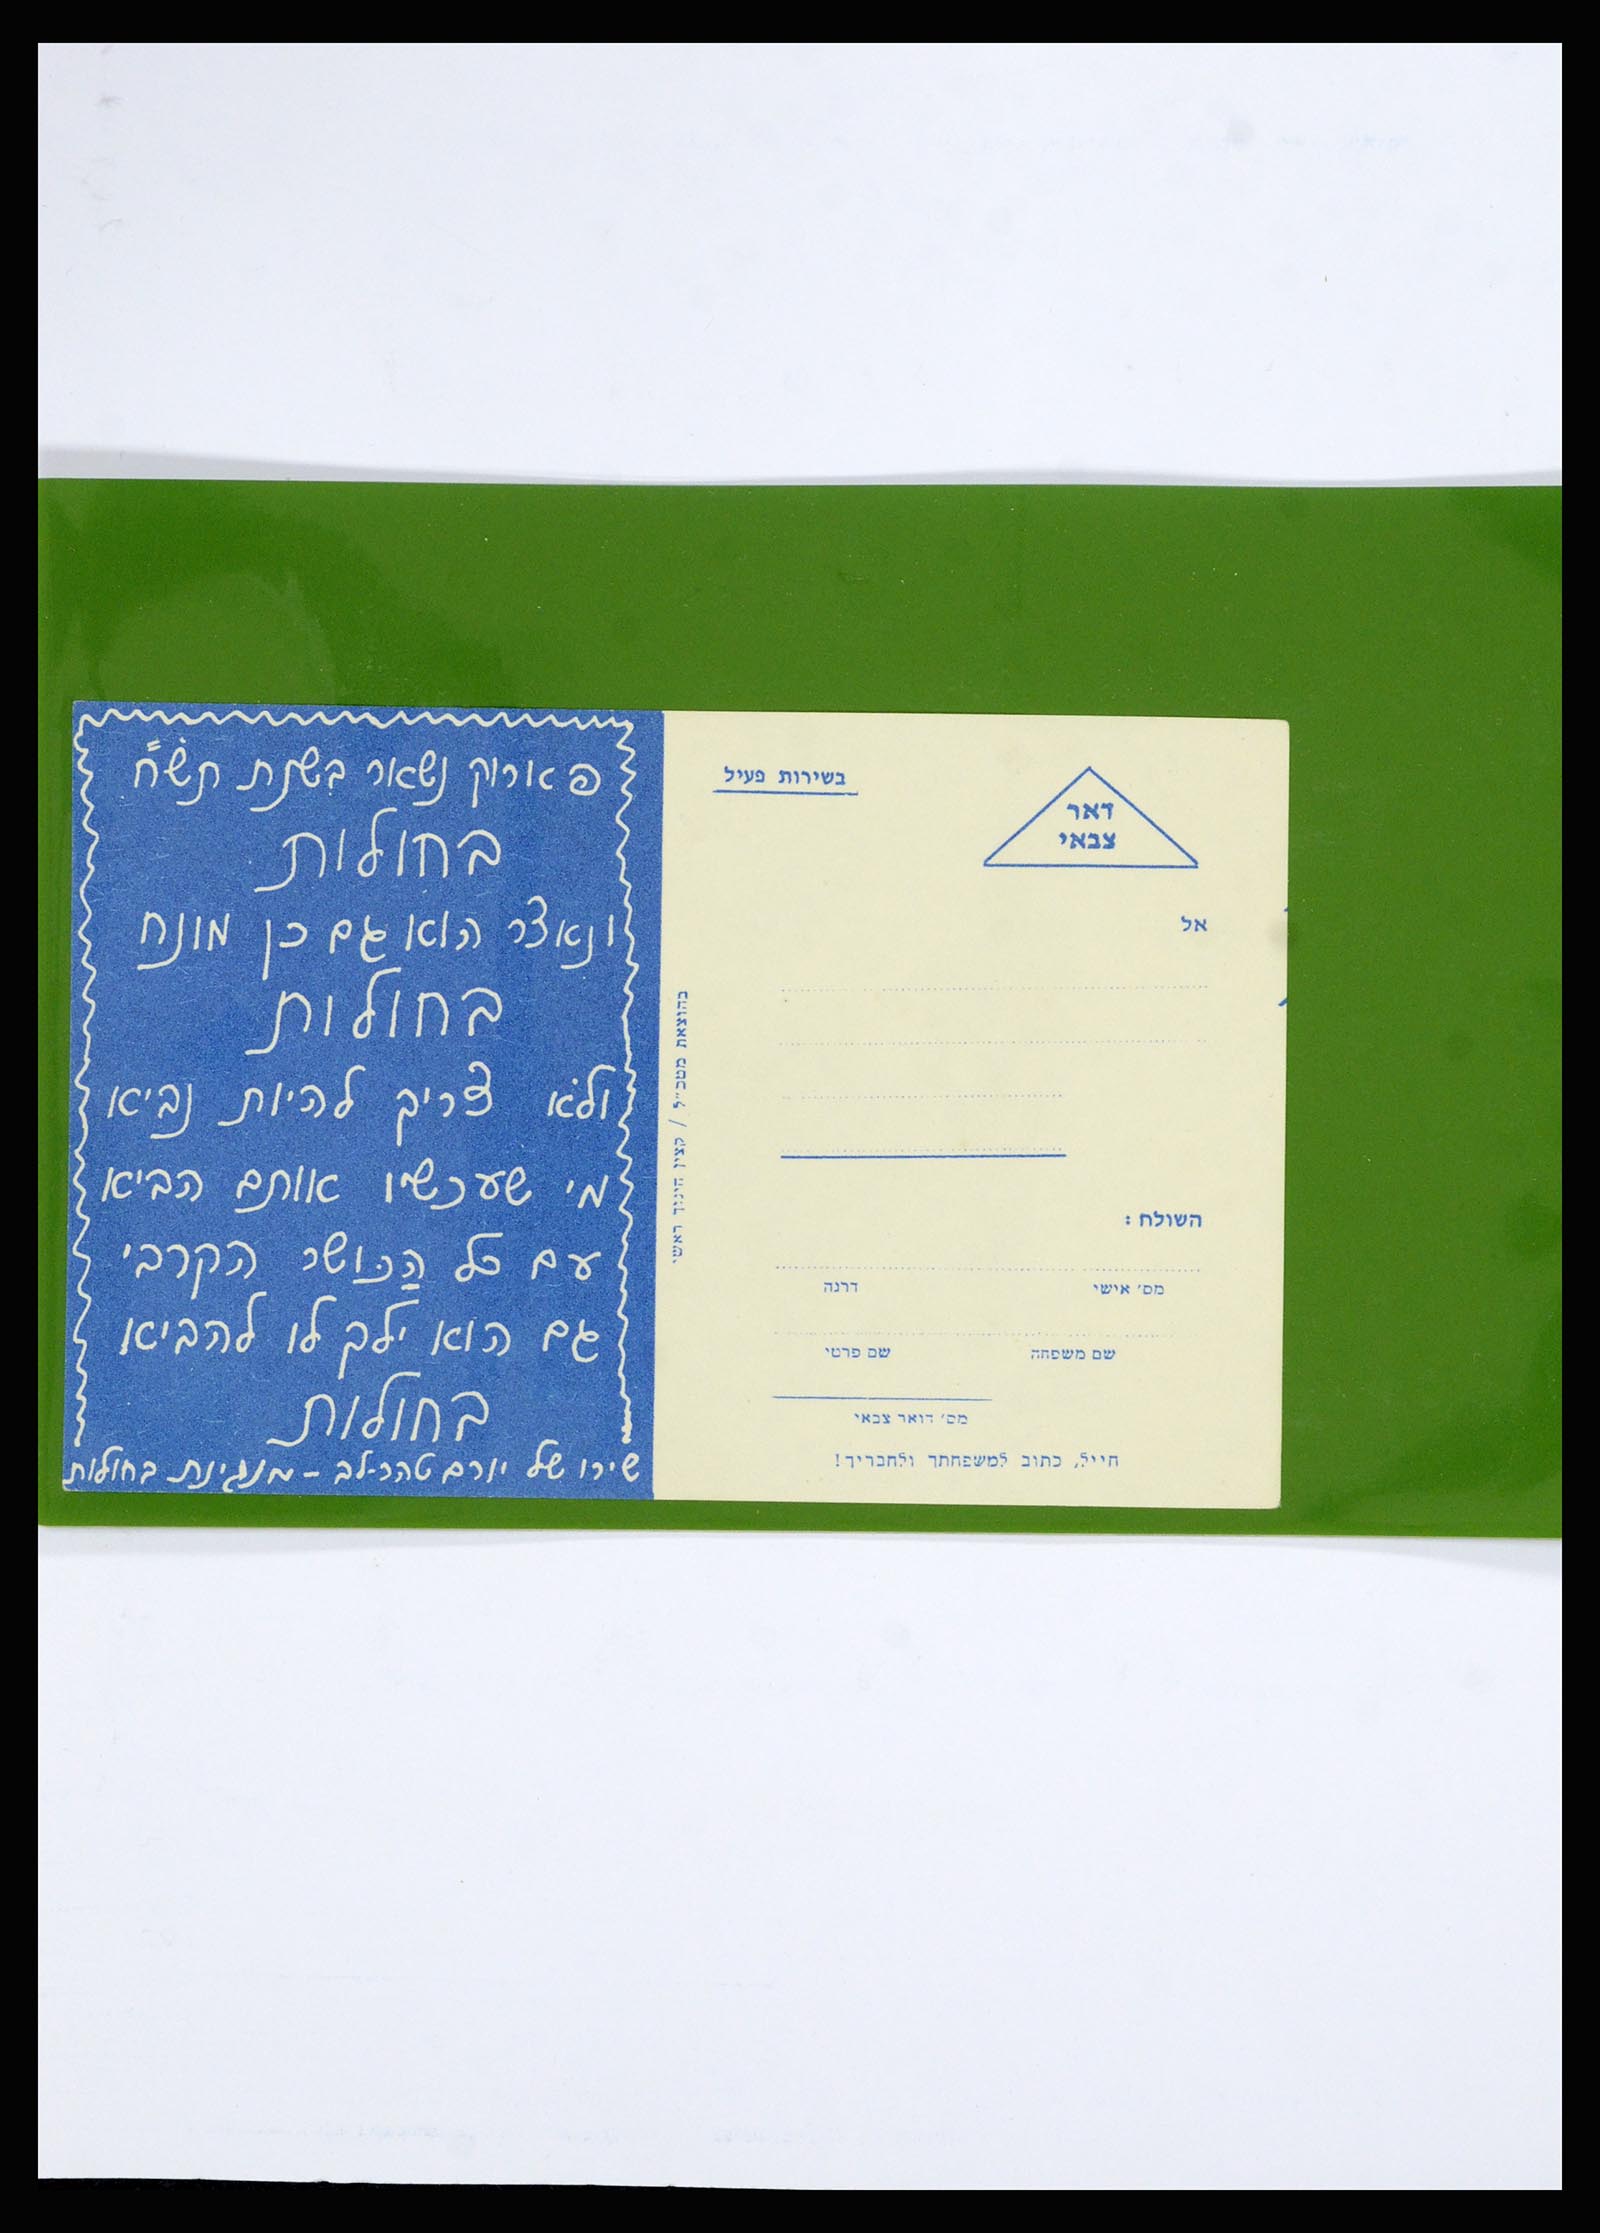 פארוק נשאר בשנת תש״ח
בחולות
ונאצר הוא גם כן מונח
בחולות
ולא צריך להיות נביא
מי שעכשיו אותם הביא
עם כל הכושר הקרבי
גם הוא ילך לו להביא
בחולות
שירו של יורם טהר-לב – מנגינת בחולות
בשירות פעיל
דאר
צבאי
אל
בהוצאת מטכ״ל / קצין חינוך ראשי
השולח:
מס׳ אישי דרגה
שם משפחה שם פרטי
מס׳ דואר צבאי
חייל, כתוב למשפחתך ולחבריך!